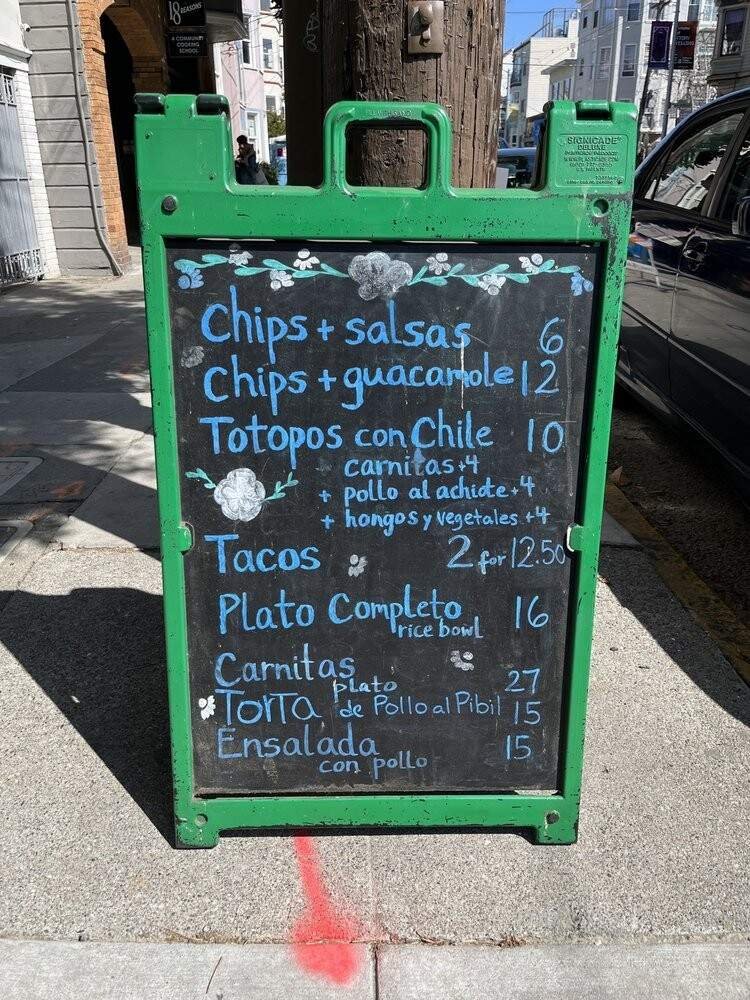 18 REASONS
A COMMUNITY
COOKING
SCHOOL
SIGNICADE
DELUXE
Chips + salsas 6
Chips + guacamole 12
Totopos con Chile 10
carnitas +4
+ pollo al achiote +4
+ hongos y vegetales +4
Tacos 2 for 12.50
Plato Completo 16
rice bowl
Carnitas
plato 27
Torta de Pollo al Pibil 15
Ensalada 15
con pollo